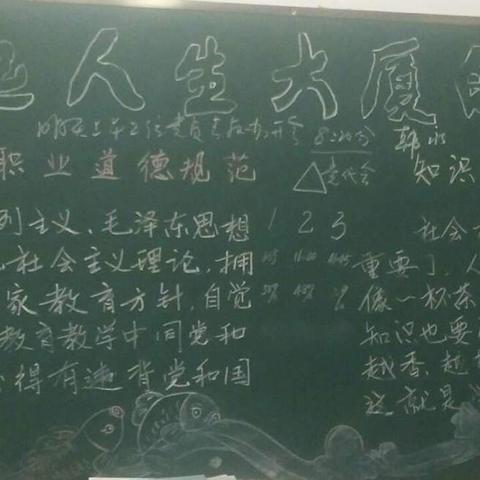 是人生大厦的
明天上午2位党员参加开会 8:20分
职业道德规范
党代会
韩水
知识
列主义、毛泽东思想
社会主义理论,拥
家教育方针,自觉
教育教学中同党和
得有违背党和国
1 2 3
社会
重要了,人
像一杯茶
知识也要
越香,越
这就是